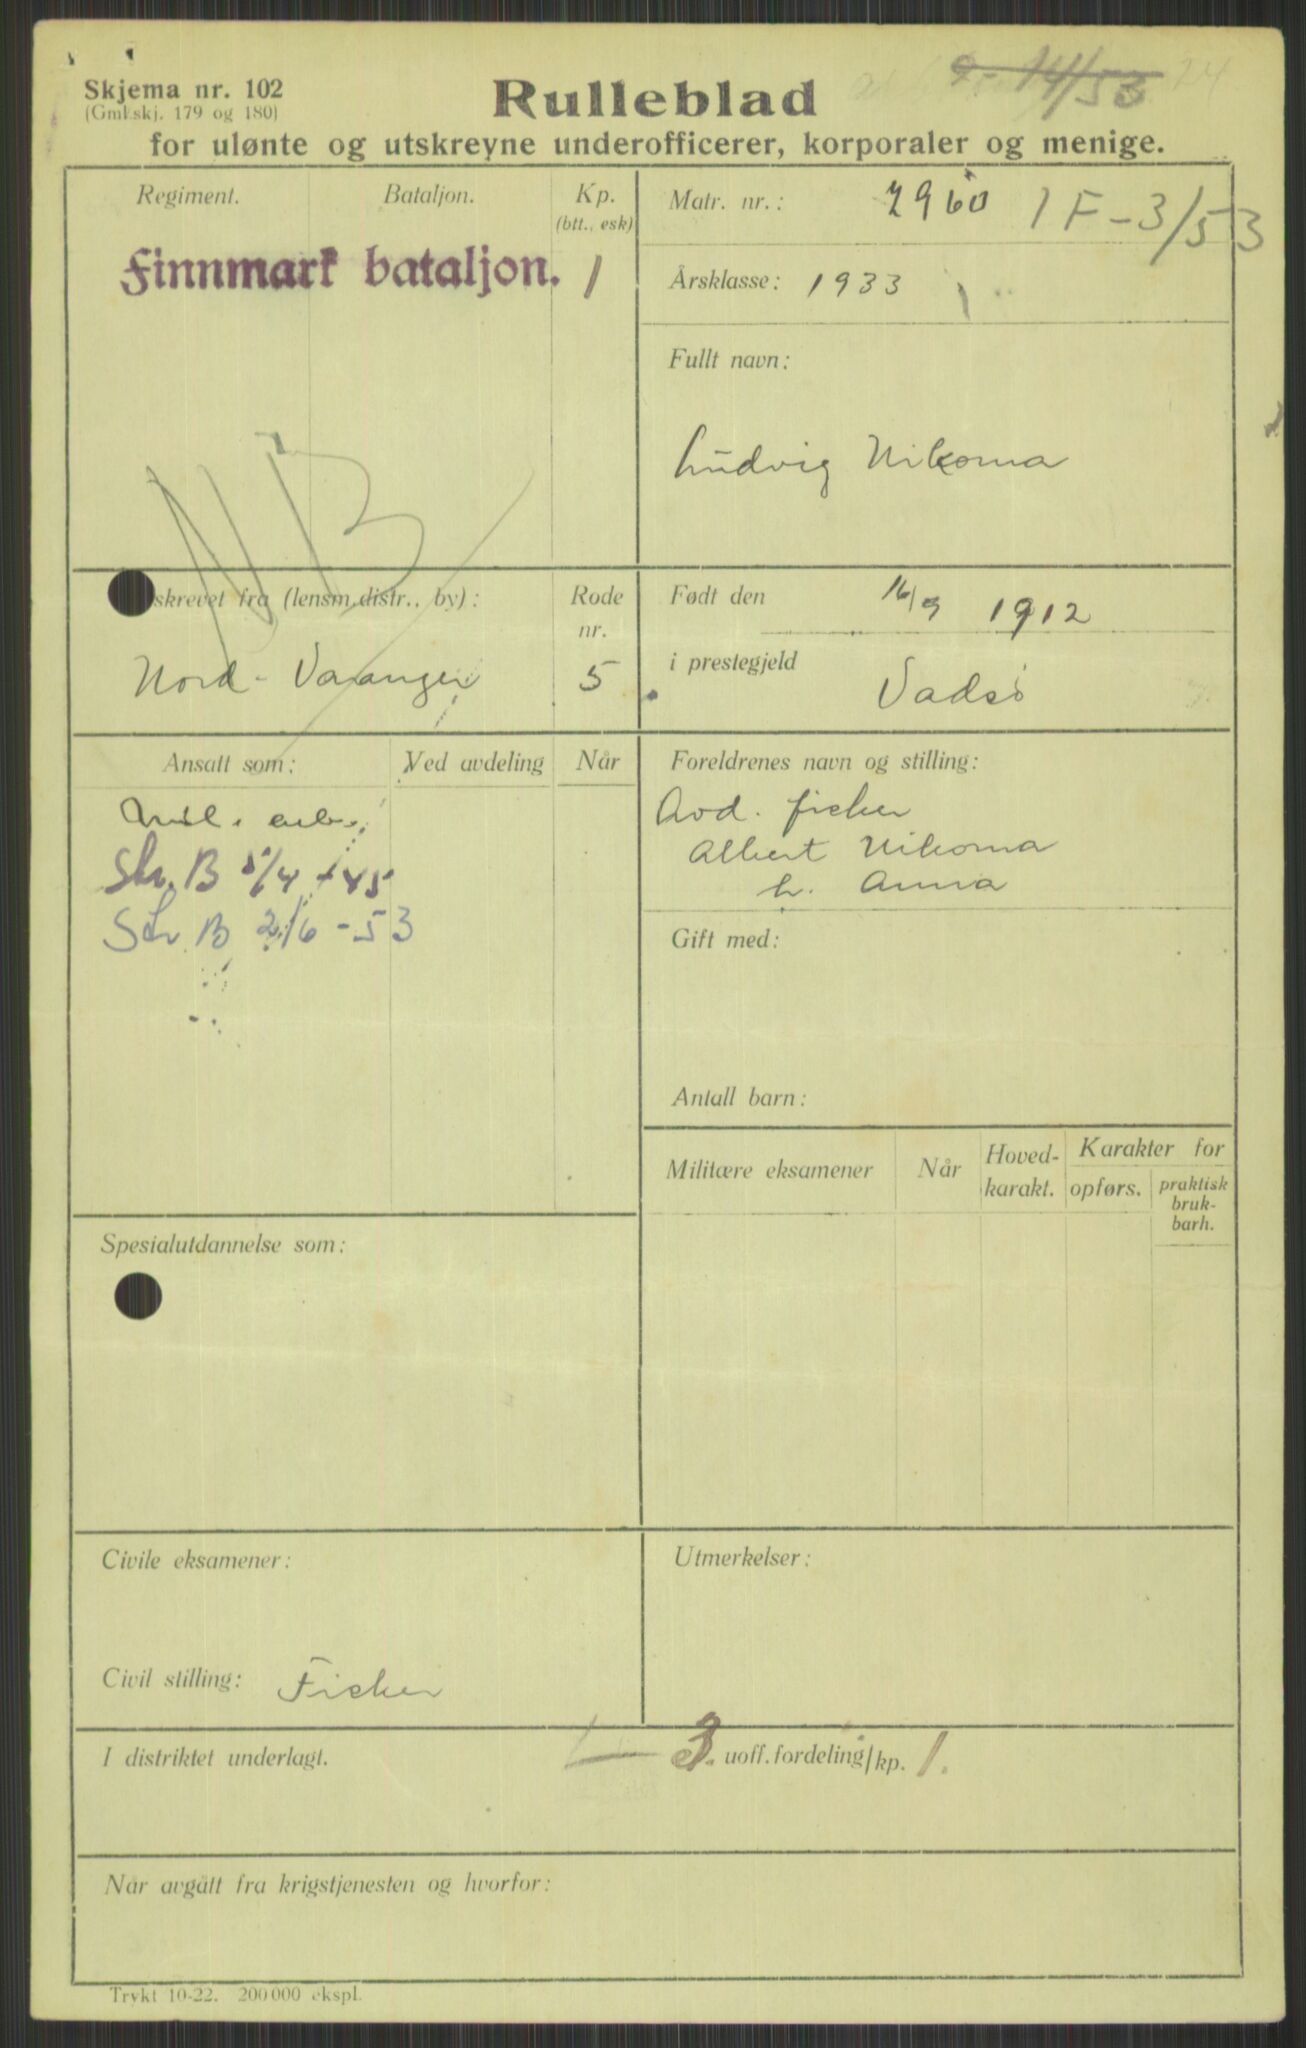 Skjema nr. 102
(Gml.skj. 179 og 180)
14/53 24
Rulleblad
for ulønte og utskrevne underofficerer, korporaler og menige.
Regiment. Bataljon. Kp.
(btt., esk)
Finnmark bataljon. 1
Matr. nr.: 2960 1 F-3/53
Årsklasse: 1933
Fullt navn:
Ludvig Nikoma
NB
skrevet fra (lensm.distr., by): Rode
nr.
Nord-Varanger 5
Født den 16/9 1912
i prestegjeld Vadsø
Ansatt som: Ved avdeling Når
Mil. arb.
Skr. B 5/4 - 45
Skr B 2/6 - 53
Foreldrenes navn og stilling:
Avd. fisker
Albert Nikoma
h. Anna
Gift med:
Antall barn:
Militære eksamener Når Hoved-
karakt. Karakter for
opførs. praktisk
bruk-
barh.
Spesialutdannelse som:
Civile eksamener:
Utmerkelser:
Civil stilling: Fisker
I distriktet underlagt. 3. uoff. fordeling/kp. 1.
Når avgått fra krigstjenesten og hvorfor:
Trykt 10-22. 200 000 ekspl.